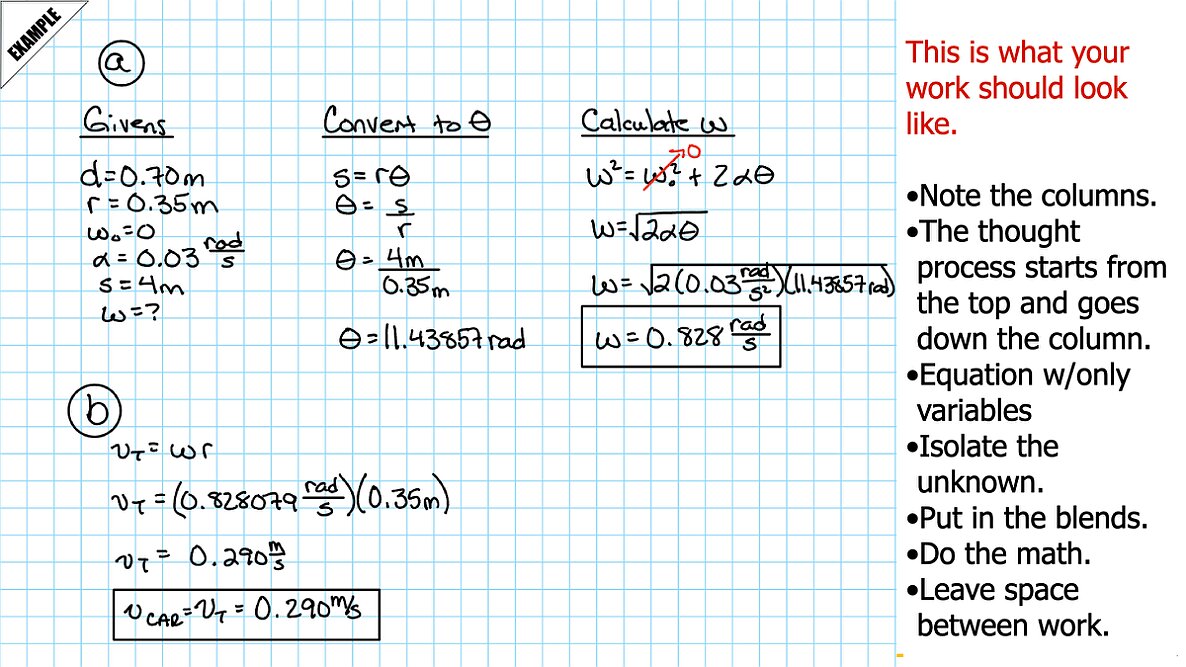 EXAMPLE
a
Givens
d=0.70m
r=0.35m
ω₀=0
α=0.03 rad/s
s=4m
ω=?
Convert to θ
s=rθ
θ= s/r
θ= 4m/0.35m
θ=11.43857 rad
Calculate ω
ω²=ω₀²→0 + 2αθ
ω=√2αθ
ω=√2(0.03 rad/s²)(11.43857 rad)
ω=0.828 rad/s
b
v_T=ωr
v_T=(0.828079 rad/s)(0.35m)
v_T= 0.290 m/s
v_CAR=v_T=0.290 m/s
This is what your
work should look
like.
•Note the columns.
•The thought
process starts from
the top and goes
down the column.
•Equation w/only
variables
•Isolate the
unknown.
•Put in the blends.
•Do the math.
•Leave space
between work.